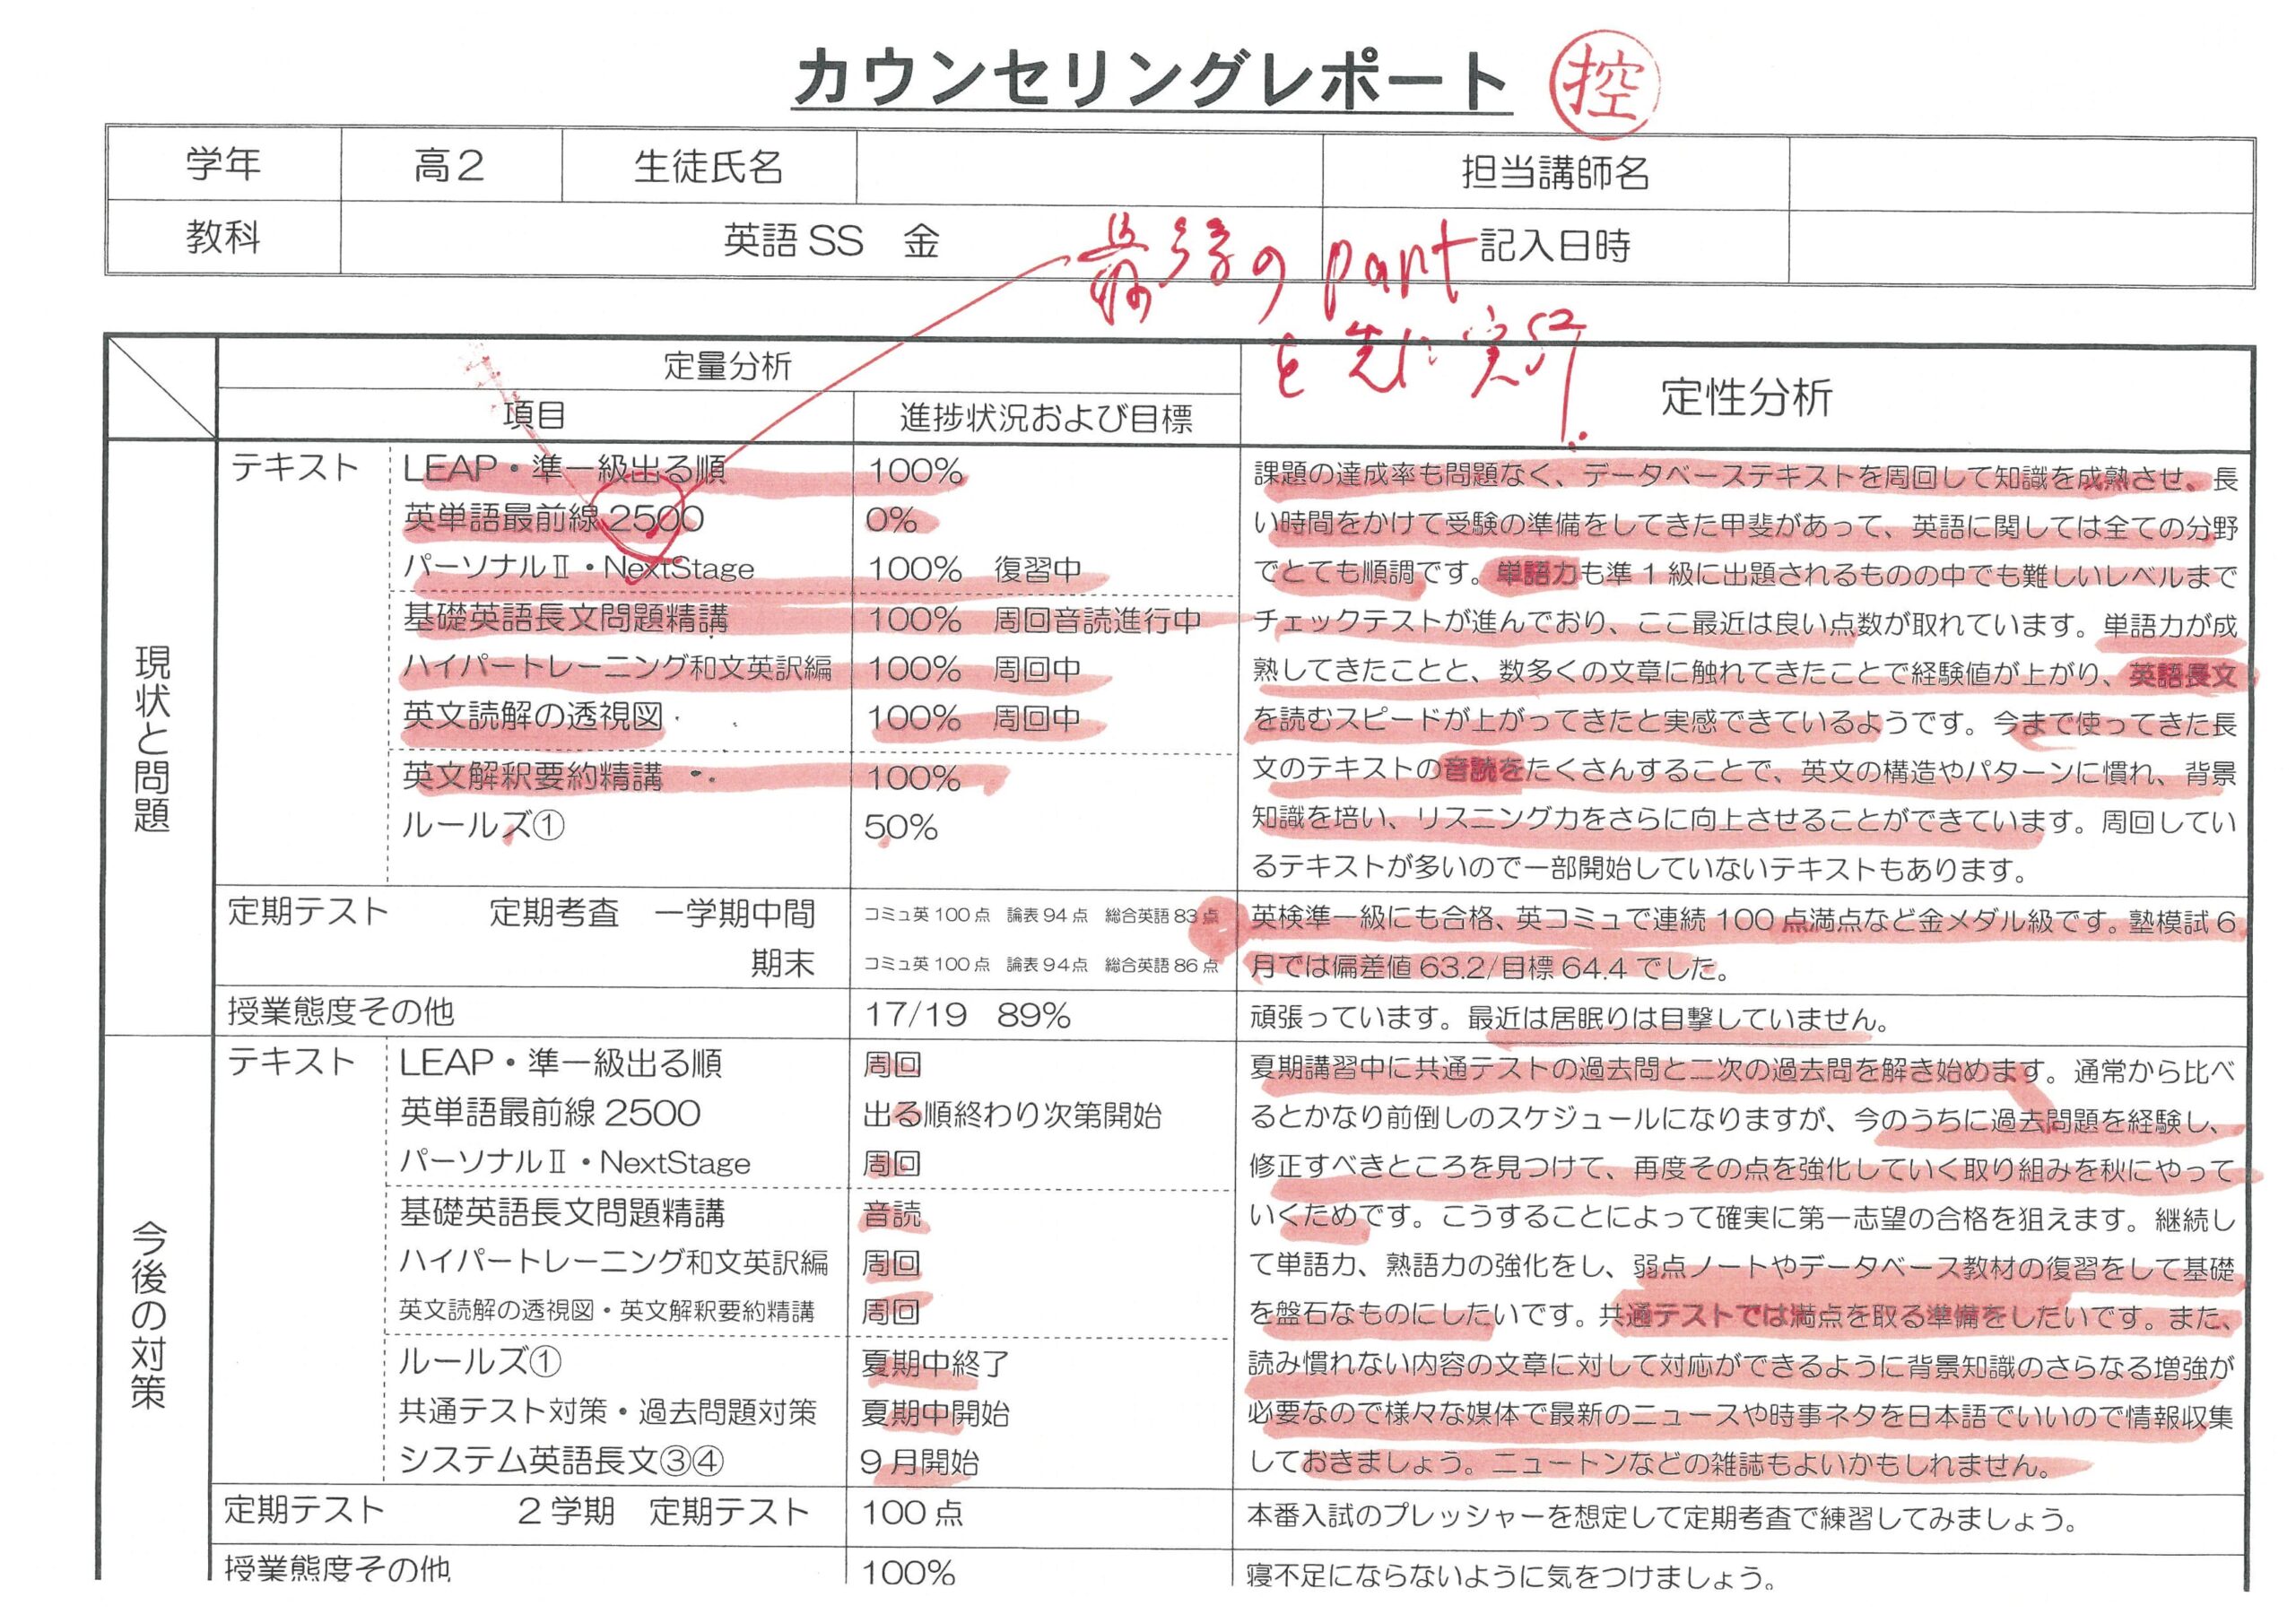 カウンセリングレポート
控
学年 高2 生徒氏名 担当講師名
教科 英語SS 金 記入日時
最後のpart
を先に実
定量分析
定性分析
項目 進捗状況および目標
現状と問題
テキスト LEAP・準一級出る順 100%
英単語最前線2500 0%
パーソナルⅡ・NextStage 100% 復習中
基礎英語長文問題精講 100% 周回音読進行中
ハイパートレーニング和文英訳編 100% 周回中
英文読解の透視図 100% 周回中
英文解釈要約精講 100%
ルールズ① 50%
課題の達成率も問題なく、データベーステキストを周回して知識を成熟させ、長
い時間をかけて受験の準備をしてきた甲斐があって、英語に関しては全ての分野
でとても順調です。単語力も準1級に出題されるものの中でも難しいレベルまで
チェックテストが進んでおり、ここ最近は良い点数が取れています。単語力が成
熟してきたことと、数多くの文章に触れてきたことで経験値が上がり、英語長文
を読むスピードが上がってきたと実感できているようです。今まで使ってきた長
文のテキストの音読をたくさんすることで、英文の構造やパターンに慣れ、背景
知識を培い、リスニング力をさらに向上させることができています。周回してい
るテキストが多いので一部開始していないテキストもあります。
定期テスト 定期考査 一学期中間 コミュ英100点 論表94点 総合英語83点
期末 コミュ英100点 論表94点 総合英語86点
英検準一級にも合格、英コミュで連続100点満点など金メダル級です。塾模試6
月では偏差値63.2/目標64.4でした。
授業態度その他 17/19 89% 頑張っています。最近は居眠りは目撃していません。
今後の対策
テキスト LEAP・準一級出る順 周回
英単語最前線2500 出る順終わり次第開始
パーソナルⅡ・NextStage 周回
基礎英語長文問題精講 音読
ハイパートレーニング和文英訳編 周回
英文読解の透視図・英文解釈要約精講 周回
ルールズ① 夏期中終了
共通テスト対策・過去問題対策 夏期中開始
システム英語長文③④ 9月開始
夏期講習中に共通テストの過去問と二次の過去問を解き始めます。通常から比べ
るとかなり前倒しのスケジュールになりますが、今のうちに過去問題を経験し、
修正すべきところを見つけて、再度その点を強化していく取り組みを秋にやって
いくためです。こうすることによって確実に第一志望の合格を狙えます。継続し
て単語力、熟語力の強化をし、弱点ノートやデータベース教材の復習をして基礎
を盤石なものにしたいです。共通テストでは満点を取る準備をしたいです。また、
読み慣れない内容の文章に対して対応ができるように背景知識のさらなる増強が
必要なので様々な媒体で最新のニュースや時事ネタを日本語でいいので情報収集
しておきましょう。ニュートンなどの雑誌もよいかもしれません。
定期テスト 2学期 定期テスト 100点 本番入試のプレッシャーを想定して定期考査で練習してみましょう。
授業態度その他 100% 寝不足にならないように気をつけましょう。